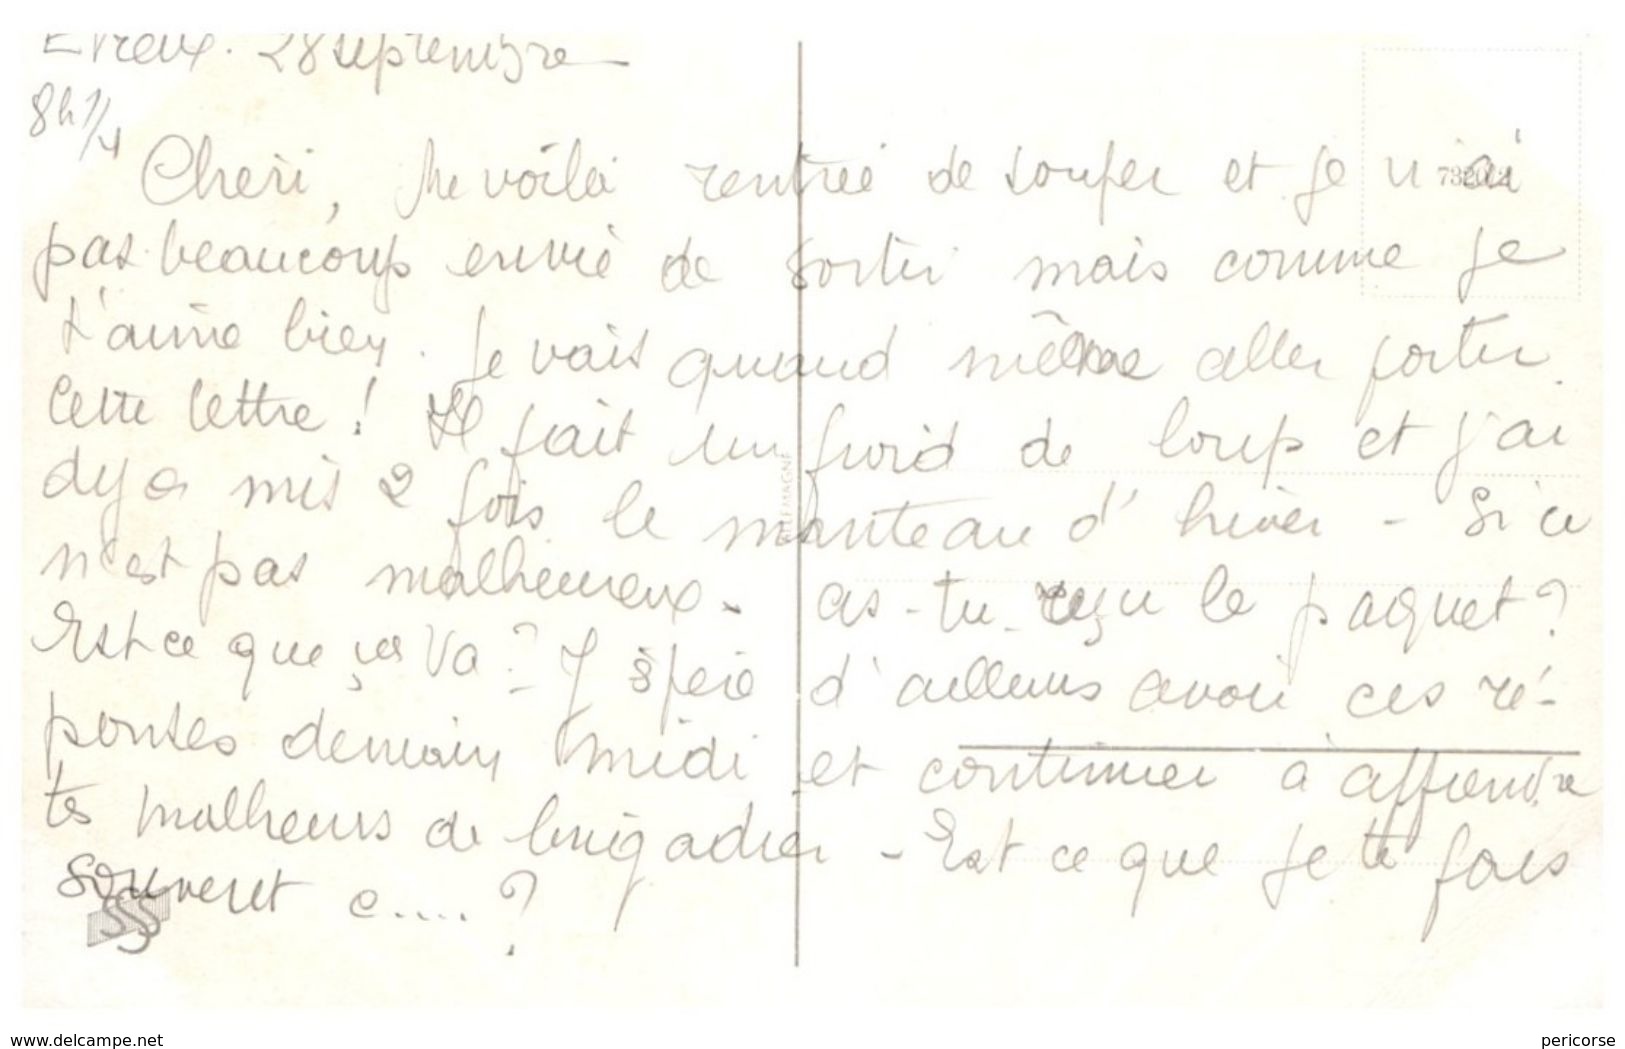 Etreux. 28 septembre
8h 1/4
Chéri, Me voilà rentrée de souper et je n'ai
73202
pas beaucoup envie de sortir mais comme je
t'aime bien. Je vais quand même aller porter
cette lettre! Il fait un froid de loup et j'ai
deja mis 2 fois le manteau d'hiver - Si ce
n'est pas malheureux. as-tu reçu le paquet?
Est ce que ça va? J'éspère d'ailleurs avoir ces ré-
ponses demain midi et continuer à apprendre
tes malheurs de brigadier - Est ce que je te fais
souvent c....?
SS
www.delcampe.net
pericorse